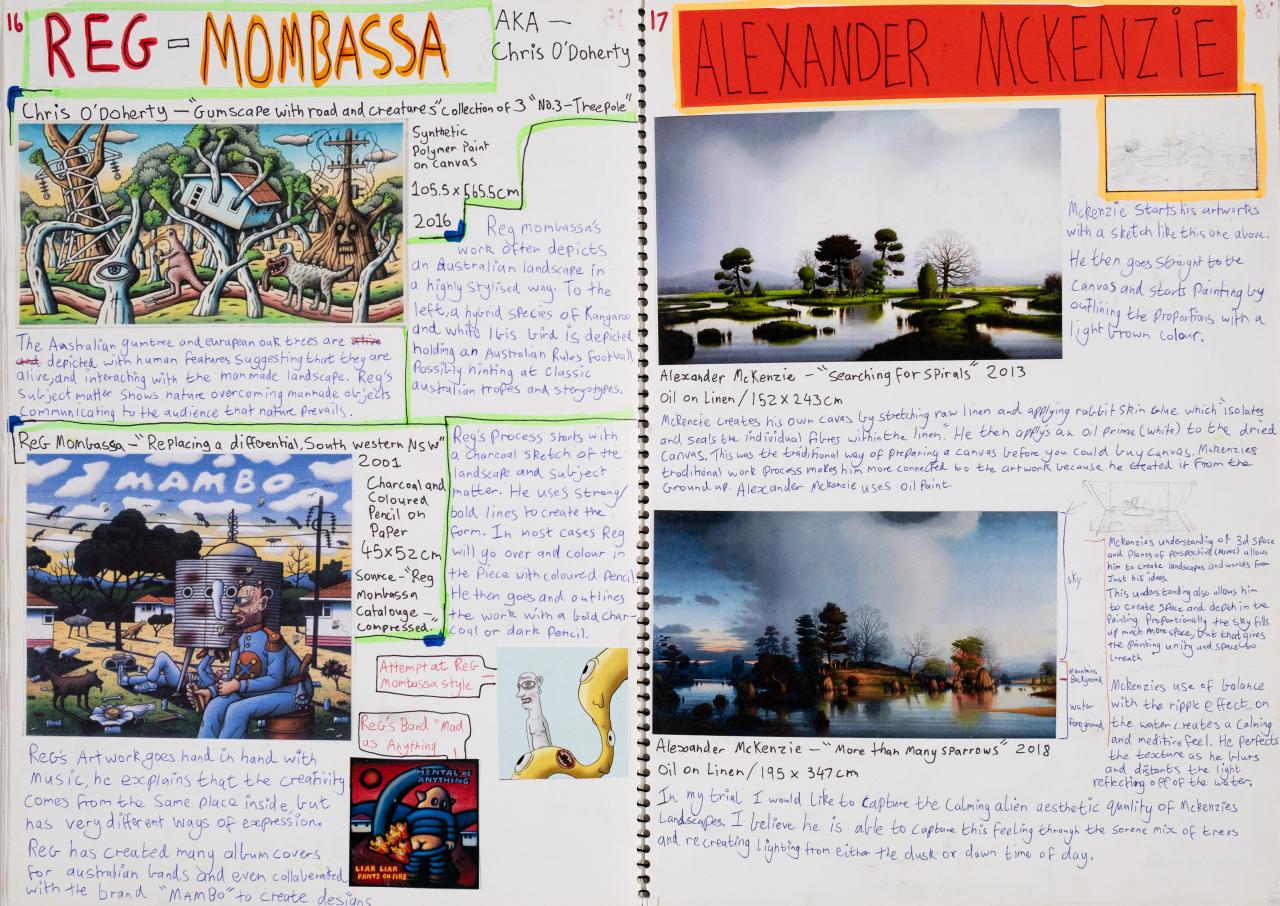 16
REG - MOMBASSA
AKA -
Chris O'Doherty
Chris O'Doherty - "Gumscape with road and creatures" Collection of 3 "No.3-Treepole"
Synthetic
Polymer Paint
on Canvas
105.5 x 565.5cm
2016
Reg mombassa's
work often depicts
an Australian landscape in
a highly stylised way. To the
left, a hybrid species of Kangaroo
and white Ibis bird is depicted
holding an Australian Rules Football
Possibly hinting at classic
australian tropes and steryotypes.
The Australian gumtree and european oak trees are alive
and depicted with human features suggesting that they are
alive, and interacting with the manmade landscape. Reg's
Subject matter shows nature overcoming manmade objects
Communicating to the audience that nature prevails.
ReG Mombassa - "Replacing a differential, South western NSW"
2001
Charcoal and
Coloured
Pencil on
Paper
45x52cm
Source - "Reg
Mombassa
Catalouge -
Compressed."
MAMBO
Reg's Process starts with
a charcoal sketch of the
landscape and subject
matter. He uses strong/
bold lines to create the
form. In most cases Reg
will go over and colour in
the Piece with coloured pencil.
He then goes and outlines
the work with a bold char-
coal or dark Pencil.
Attempt at ReG
Mombassa style
ReG's Band "Mad
as Anything
MENTAL AS
ANYTHING
LIAR LIAR
PANTS ON FIRE
Reg's Artwork goes hand in hand with
Music, he explains that the creativity
comes from the same place inside, but
has very different ways of expression.
Reg has created many album covers
for australian bands and even collaberated
with the brand "MAMBO" to create designs
17
ALEXANDER MCKENZIE
Mckenzie Starts his artworks
with a sketch like this one above.
He then goes Straight to the
Canvas and starts Painting by
outlining the proportions with a
light brown colour.
Alexander McKenzie - "Searching for Spirals" 2013
Oil on Linen / 152 x 243cm
McKenzie creates his own cavas by stretching raw linen and applying rabbit skin glue which "isolates
and seals the individual fibres within the linen." He then applys an oil prime (white) to the dried
Canvas. This was the traditional way of preparing a canvas before you could buy canvas. McKenzies
traditional work process makes him more connected to the artwork because he created it from the
Ground up. Alexander Mckenzie uses Oil Paint.
sky
Mountains
Background
water
Foreground
Mckenzies understanding of 3d space
and Planes of perspective (Above) allows
him to create landscapes and worlds from
Just his ideas.
This understanding also allows him
to create space and depth in the
Painting. Proportionally the sky fills
up much more space, but that gives
the painting unity and space to
breath
McKenzies use of balance
with the ripple effect on
the water creates a Calming
and meditive feel. He perfects
the texture as he blurs
and distorts the light
reflecting off of the water.
Alexander McKenzie - "More than Many Sparrows" 2018
Oil on Linen / 195 x 347cm
In my trial I would like to capture the Calming alien aesthetic quality of Mckenzies
Landscapes. I believe he is able to capture this feeling through the serene mix of trees
and recreating lighting from either the dusk or dawn time of day.